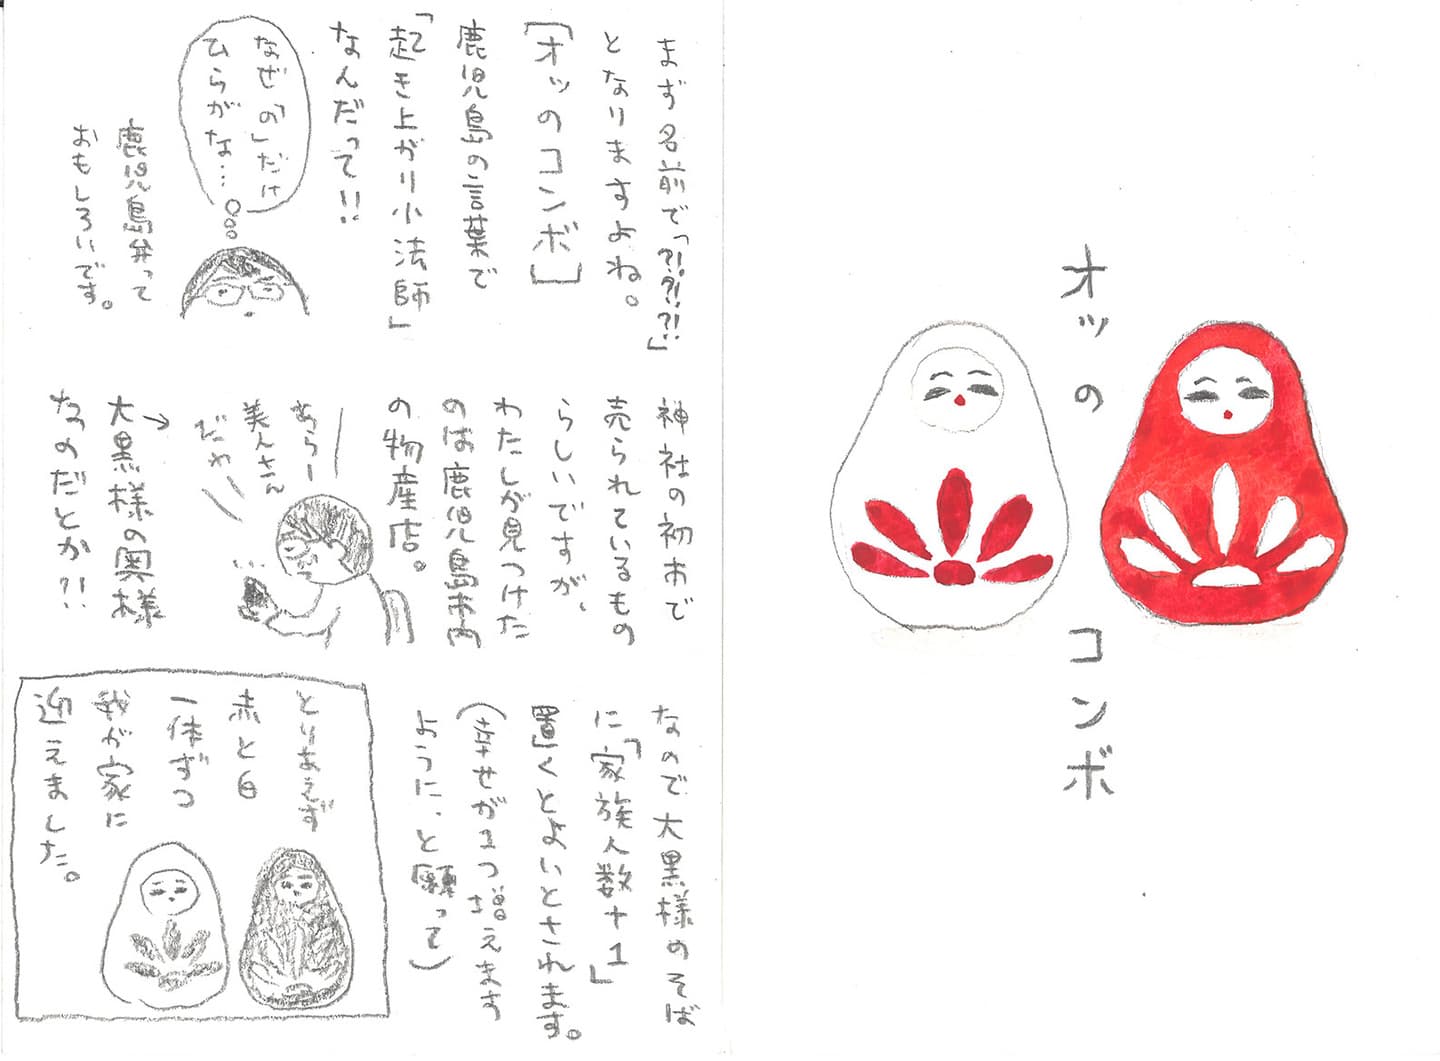 オッの
コンボ
まず名前で「?!?!?!」
となりますよね。
[オッのコンボ]
鹿児島の言葉で
「起き上がり小法師」
なんだって!!
なぜ「の」だけ
ひらがな…
鹿児島弁って
おもしろいです。
神社の初市で
売られているもの
らしいですが、
わたしが見つけた
のは鹿児島市内
の物産店。
あらー
美人さん
だわ
→大黒様の奥様
なのだとか?!!
なので大黒様のそば
に「家族人数+1」
置くとよいとされます。
(幸せが1つ増えます
ように、と願って)
とりあえず
赤と白
一体ずつ
我が家に
迎えました。